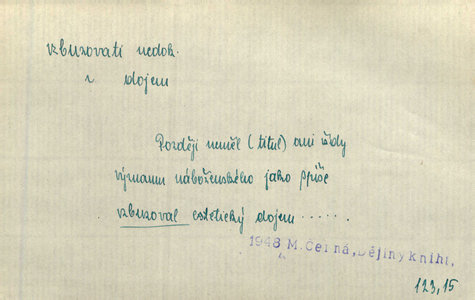 vzbuzovati nedok.
~ dojem
Později neměl (titul) ani vždy
významu náboženského jako spíše
vzbuzoval estetický dojem ......
1948 M.Černá, Dějiny knihi.
123,15